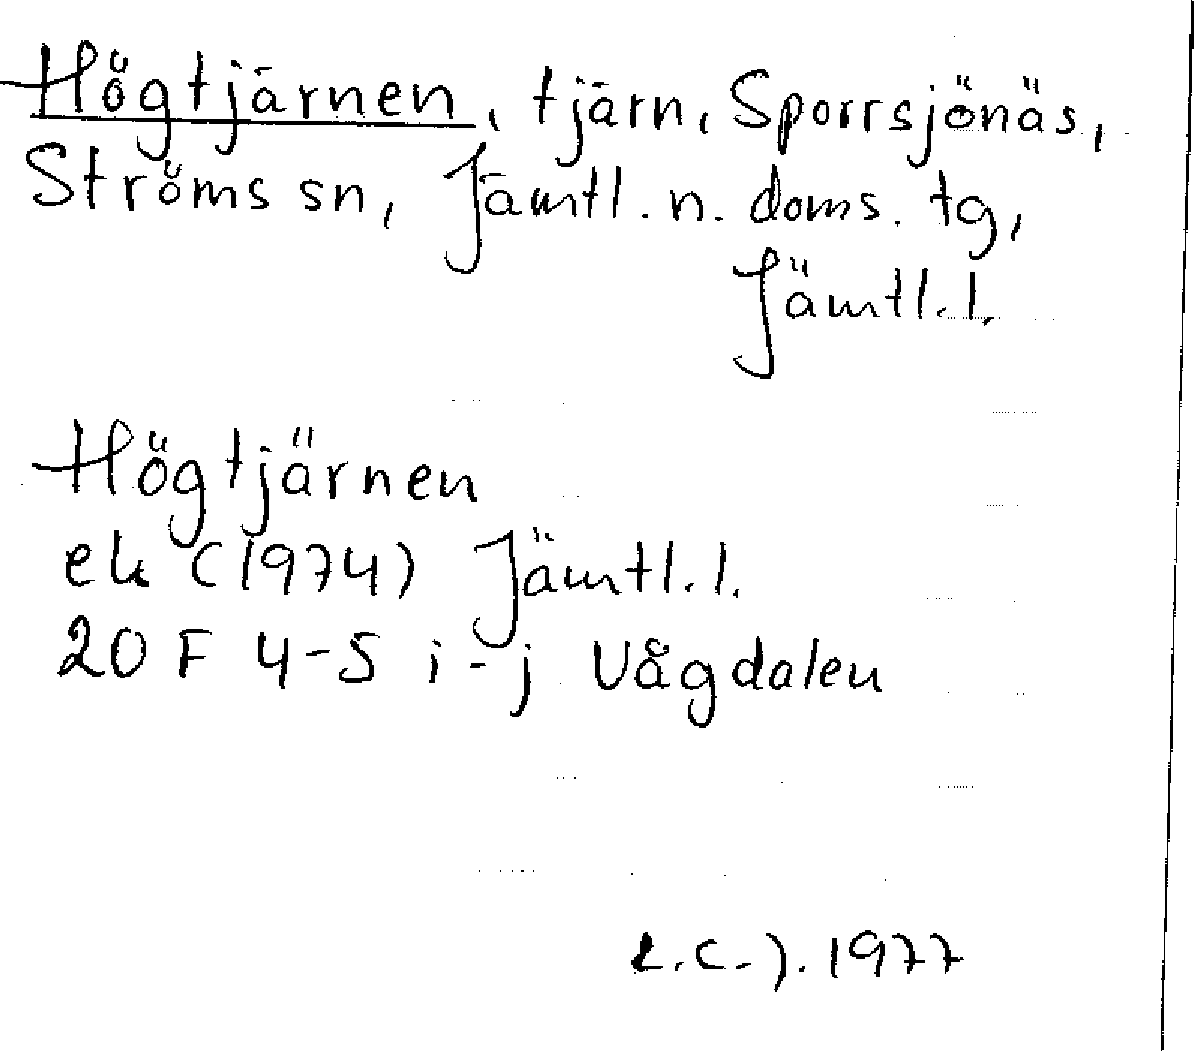 Högtjärnen, tjärn, Sporrsjönäs,
Ströms sn, Jämtl. n. doms. tg,
Jämtl. l.
Högtjärnen
ek (1974) Jämtl. l.
20 F 4-5 i-j Vågdalen
1977